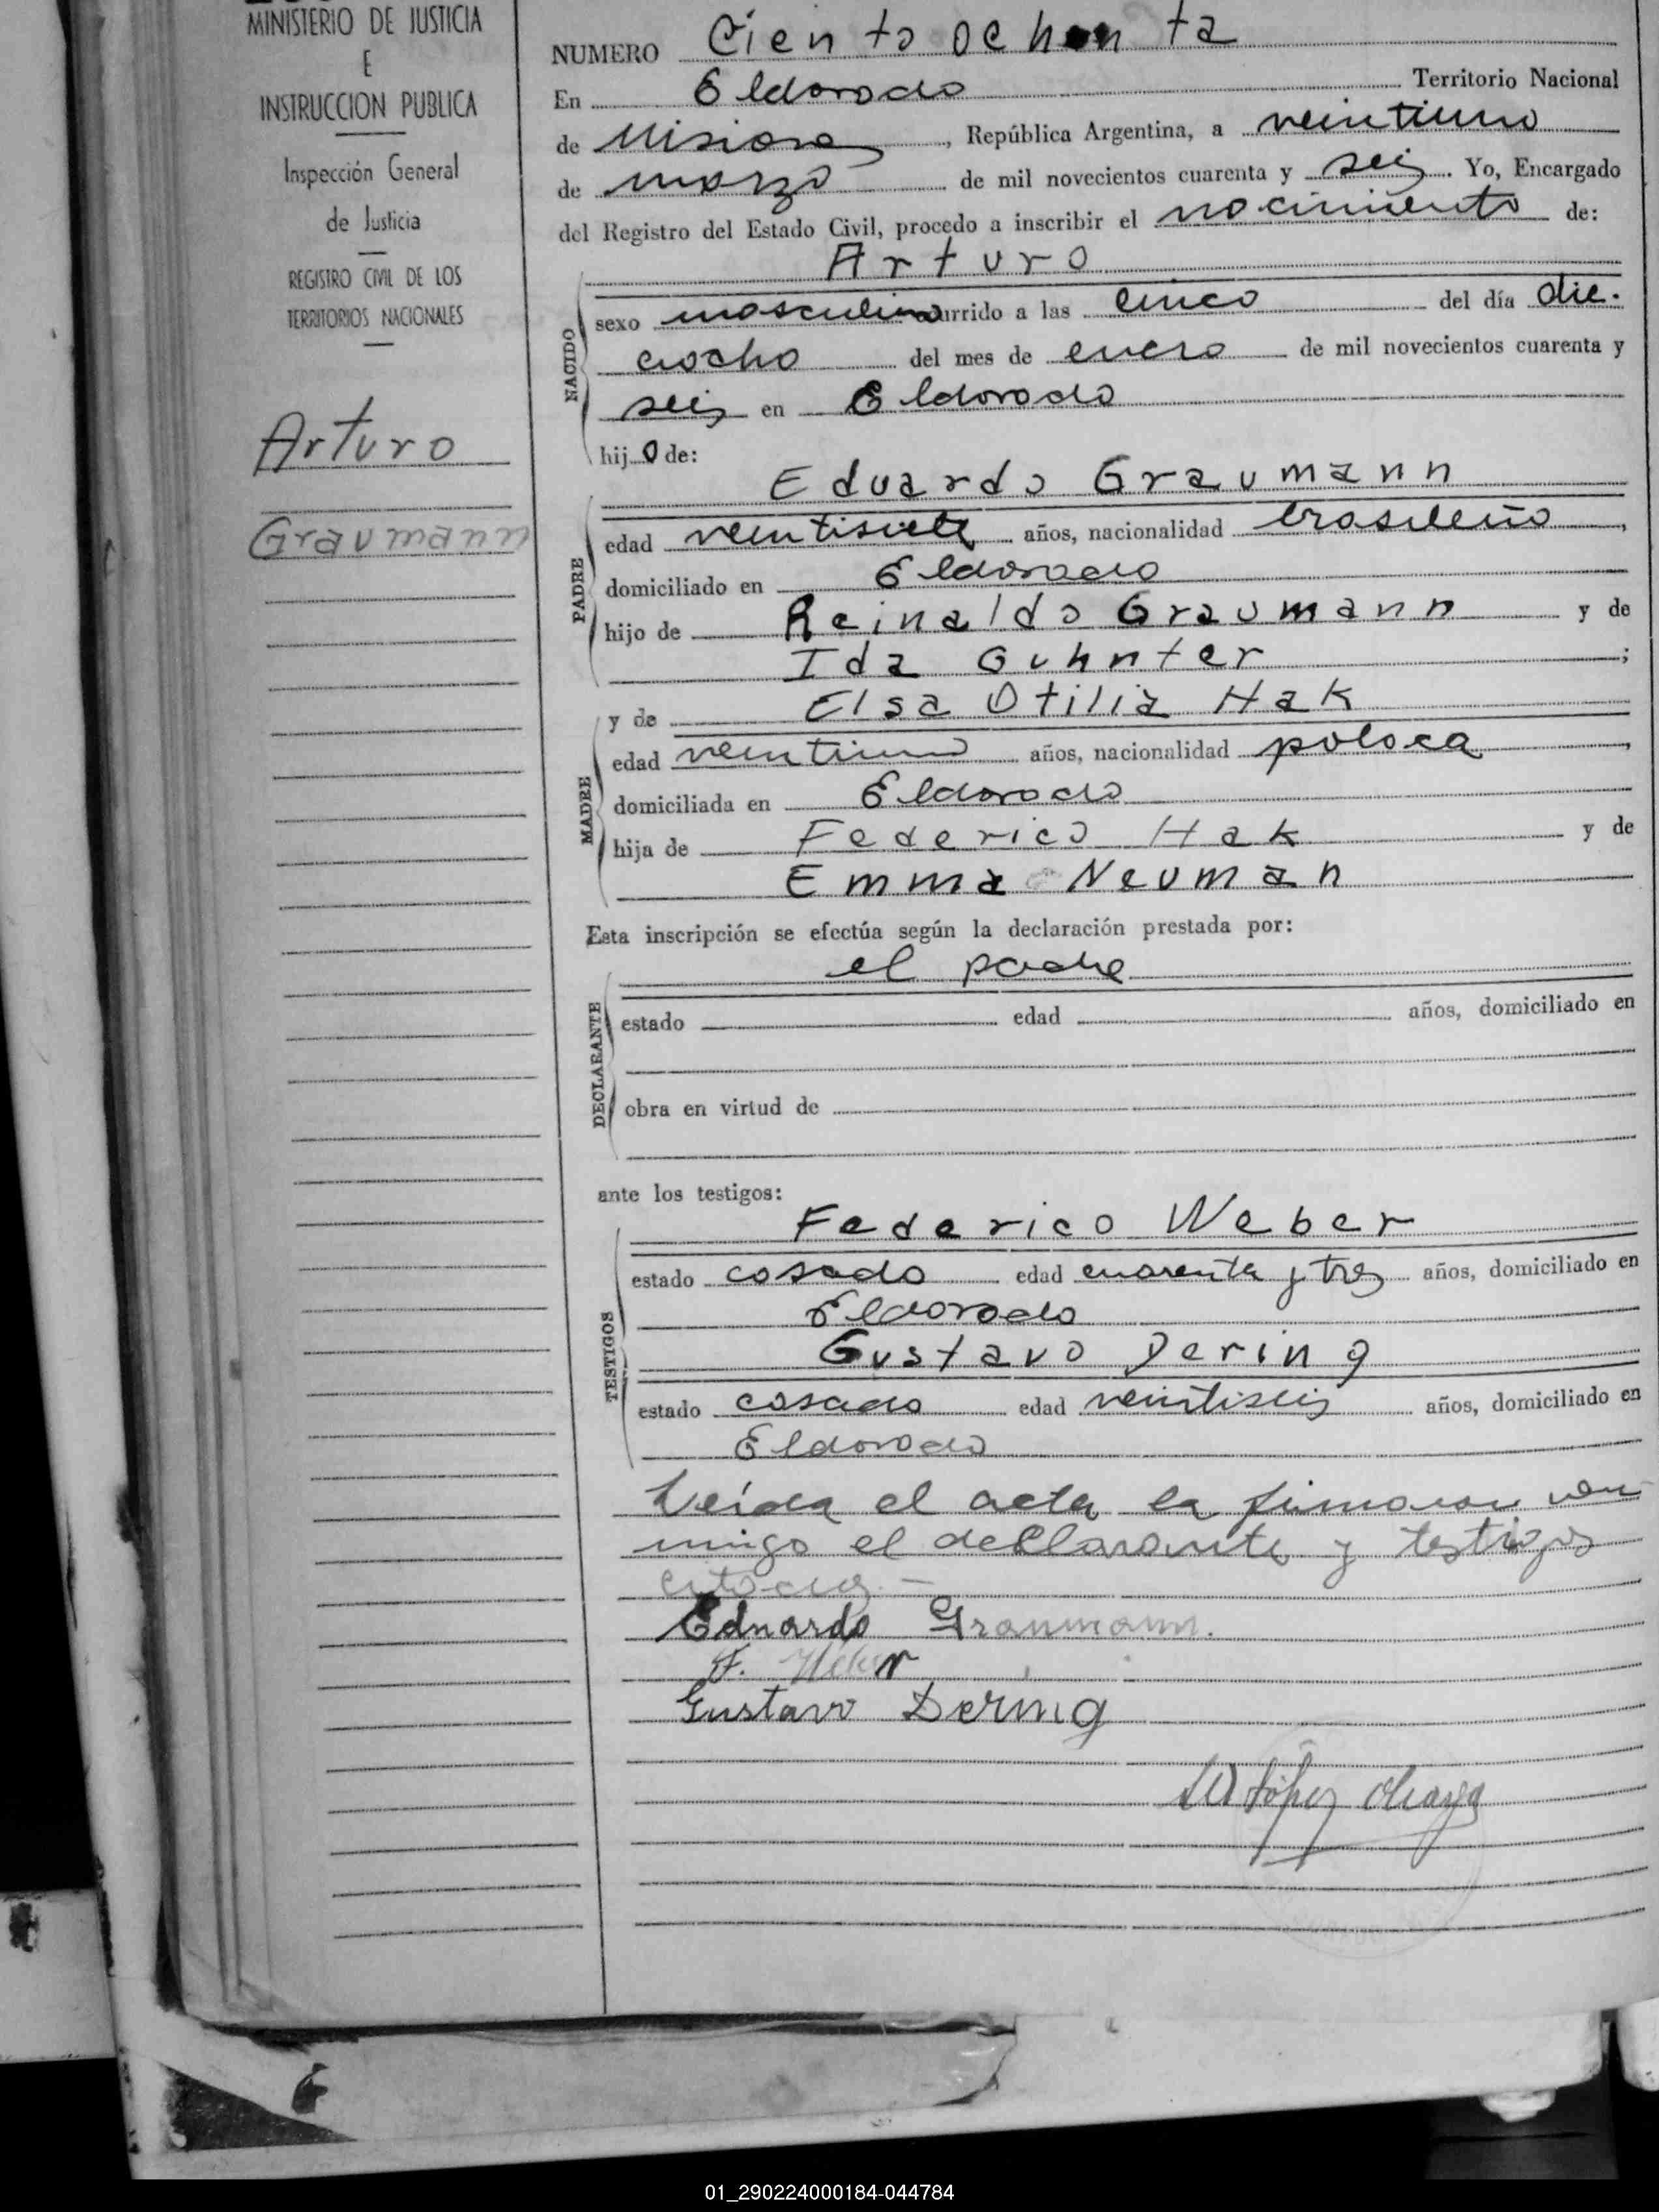 MINISTERIO DE JUSTICIA
E
INSTRUCCION PUBLICA
Inspección General
de Justicia
REGISTRO CIVIL DE LOS
TERRITORIOS NACIONALES
Arturo
Graumann
NUMERO Ciento ochenta
En Eldorado Territorio Nacional
de Misiones, República Argentina, a veintiuno
de marzo de mil novecientos cuarenta y seis. Yo, Encargado
del Registro del Estado Civil, procedo a inscribir el nacimiento de:
NACIDO
Arturo
sexo masculino ocurrido a las cinco del día die-
ciocho del mes de enero de mil novecientos cuarenta y
seis en Eldorado
hijo de:
PADRE
Eduardo Graumann
edad veintisiete años, nacionalidad brasileño,
domiciliado en Eldorado
hijo de Reinaldo Graumann y de
Ida Guhnter;
MADRE
y de Elsa Otilia Hak
edad veintiuno años, nacionalidad polaca,
domiciliada en Eldorado
hija de Federico Hak y de
Emma Neuman
Esta inscripción se efectúa según la declaración prestada por:
DECLARANTE
el padre
estado edad años, domiciliado en
obra en virtud de
ante los testigos:
TESTIGOS
Federico Weber
estado casado edad cuarenta y tres años, domiciliado en
Eldorado
Gustavo Dering
estado casado edad veintiseis años, domiciliado en
Eldorado
Leída el acta la firmaron con
migo el declarante y testigos
citados.—
Eduardo Graumann.
F. Weber
Gustavo Dering
López
01_290224000184-044784